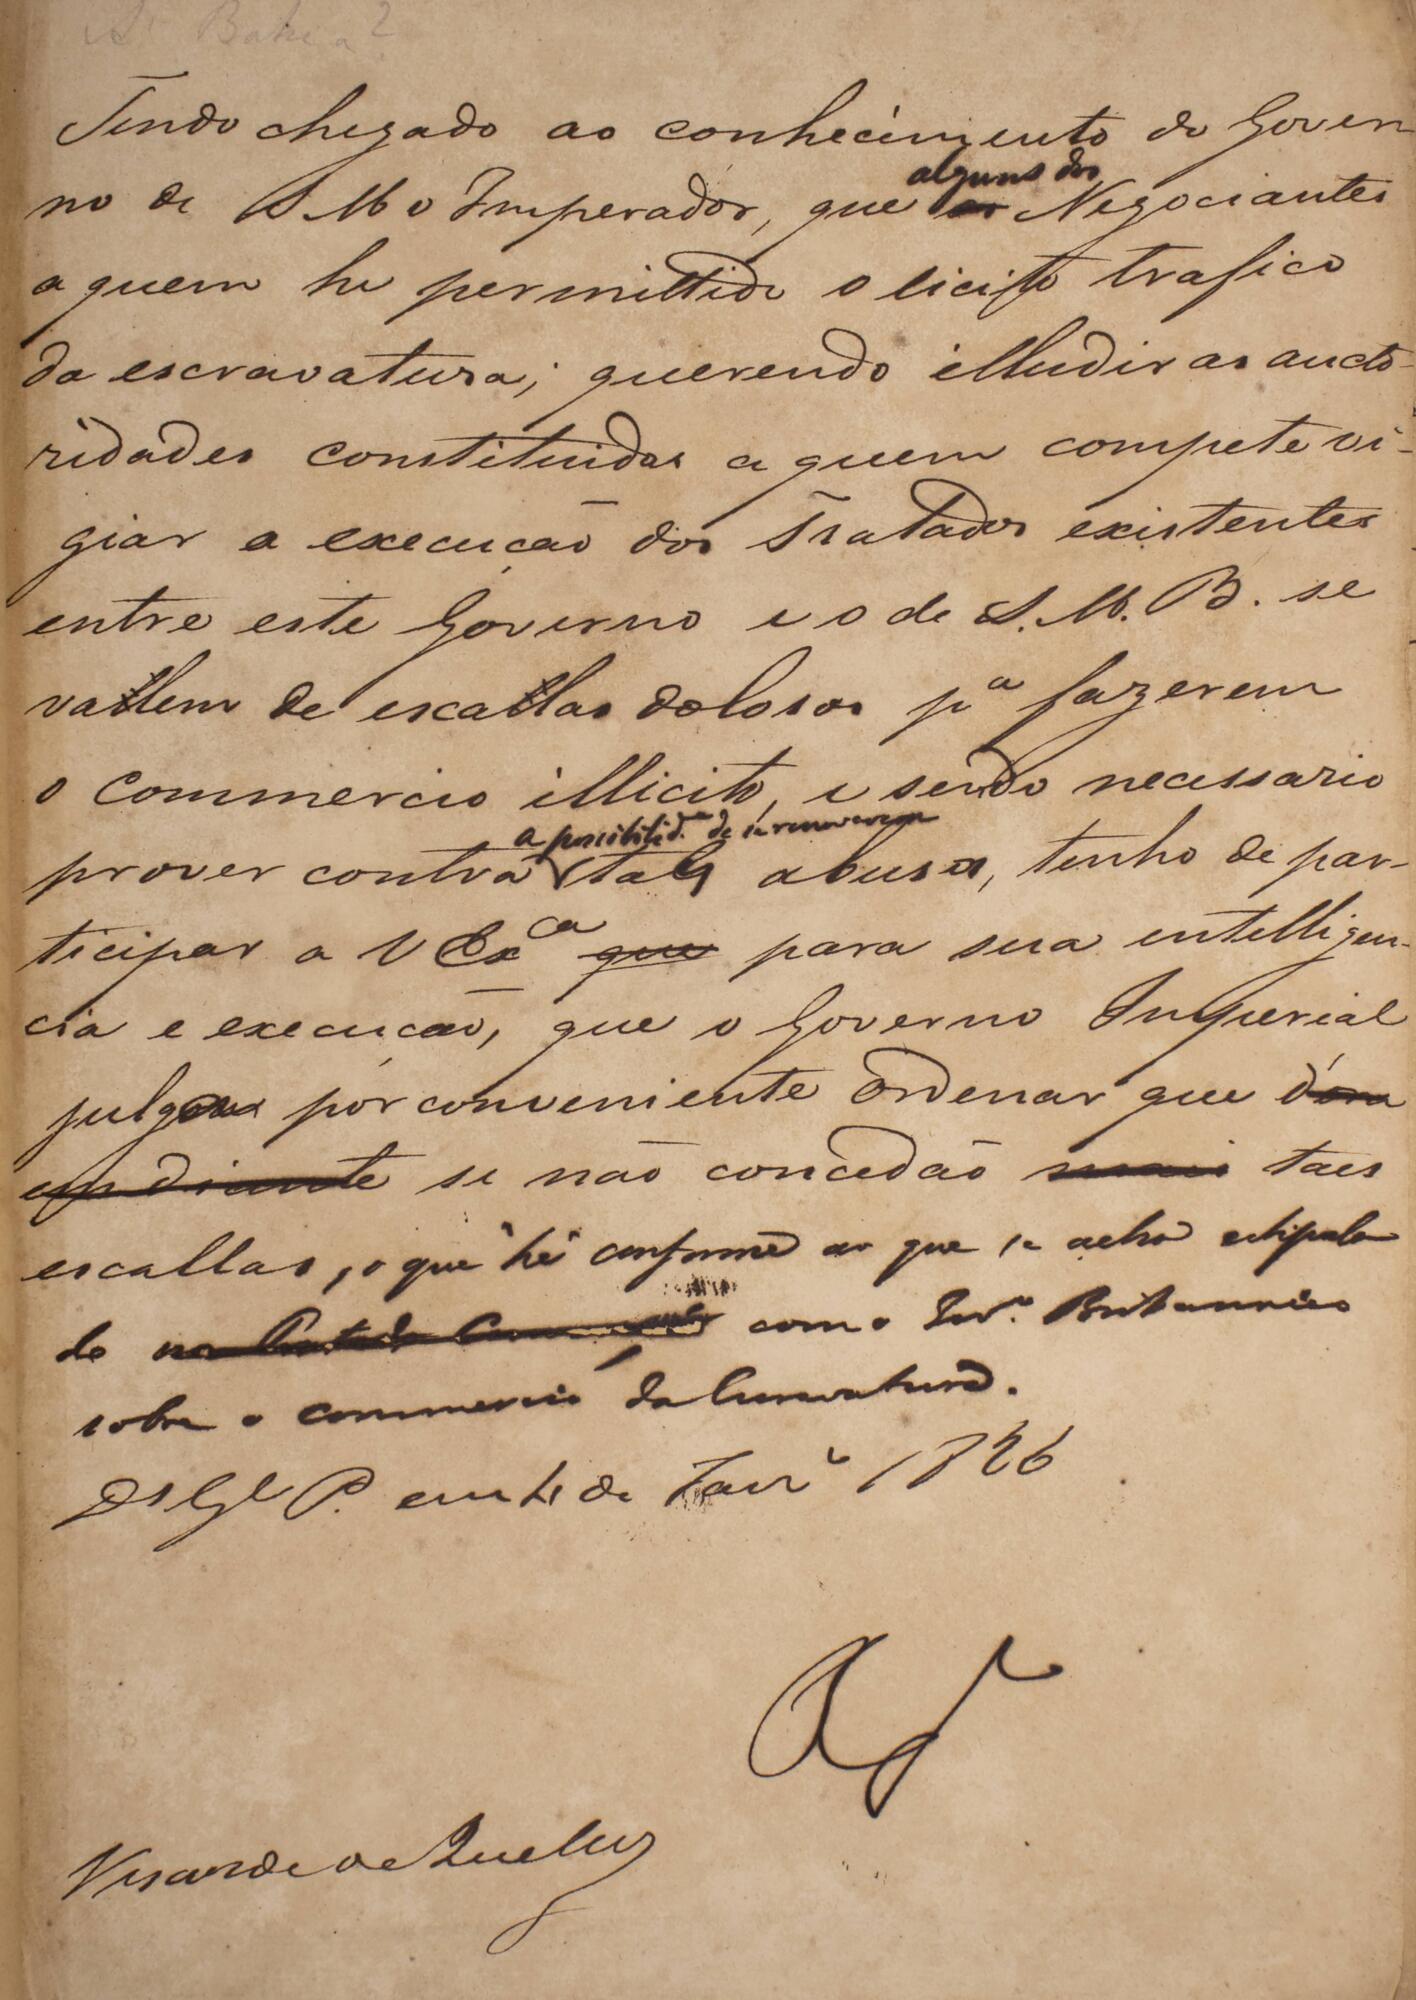 Bahia?
Tendo chegado ao conhecimento do Gover
no de S M o Imperador, que os alguns dos Negociantes
a quem he permittido o licito trafico
da escravatura; querendo illudir as aucto-
ridades constituidas a quem compete vi-
giar a execução dos Tratados existentes
entre este Governo e o de S. M. B. se
vallem de escallas dolosas pª fazerem
o commercio illicito, e sendo necessario
a possibilidᵉ de se renovarem
prover contra taes abusos, tenho de par-
ticipar a V Exᶜᵃ que para sua intelligen-
cia e execução, que o Governo Imperial
julgou por conveniente ordenar que d'ora
em diante se não concedão mais taes
escallas, o que hé conforme ao que se acha estipula
do com o Govº Britannico
sobre o commercio da
Ds Gᵉ P. em de Janrº 1826
Visconde de Queluz